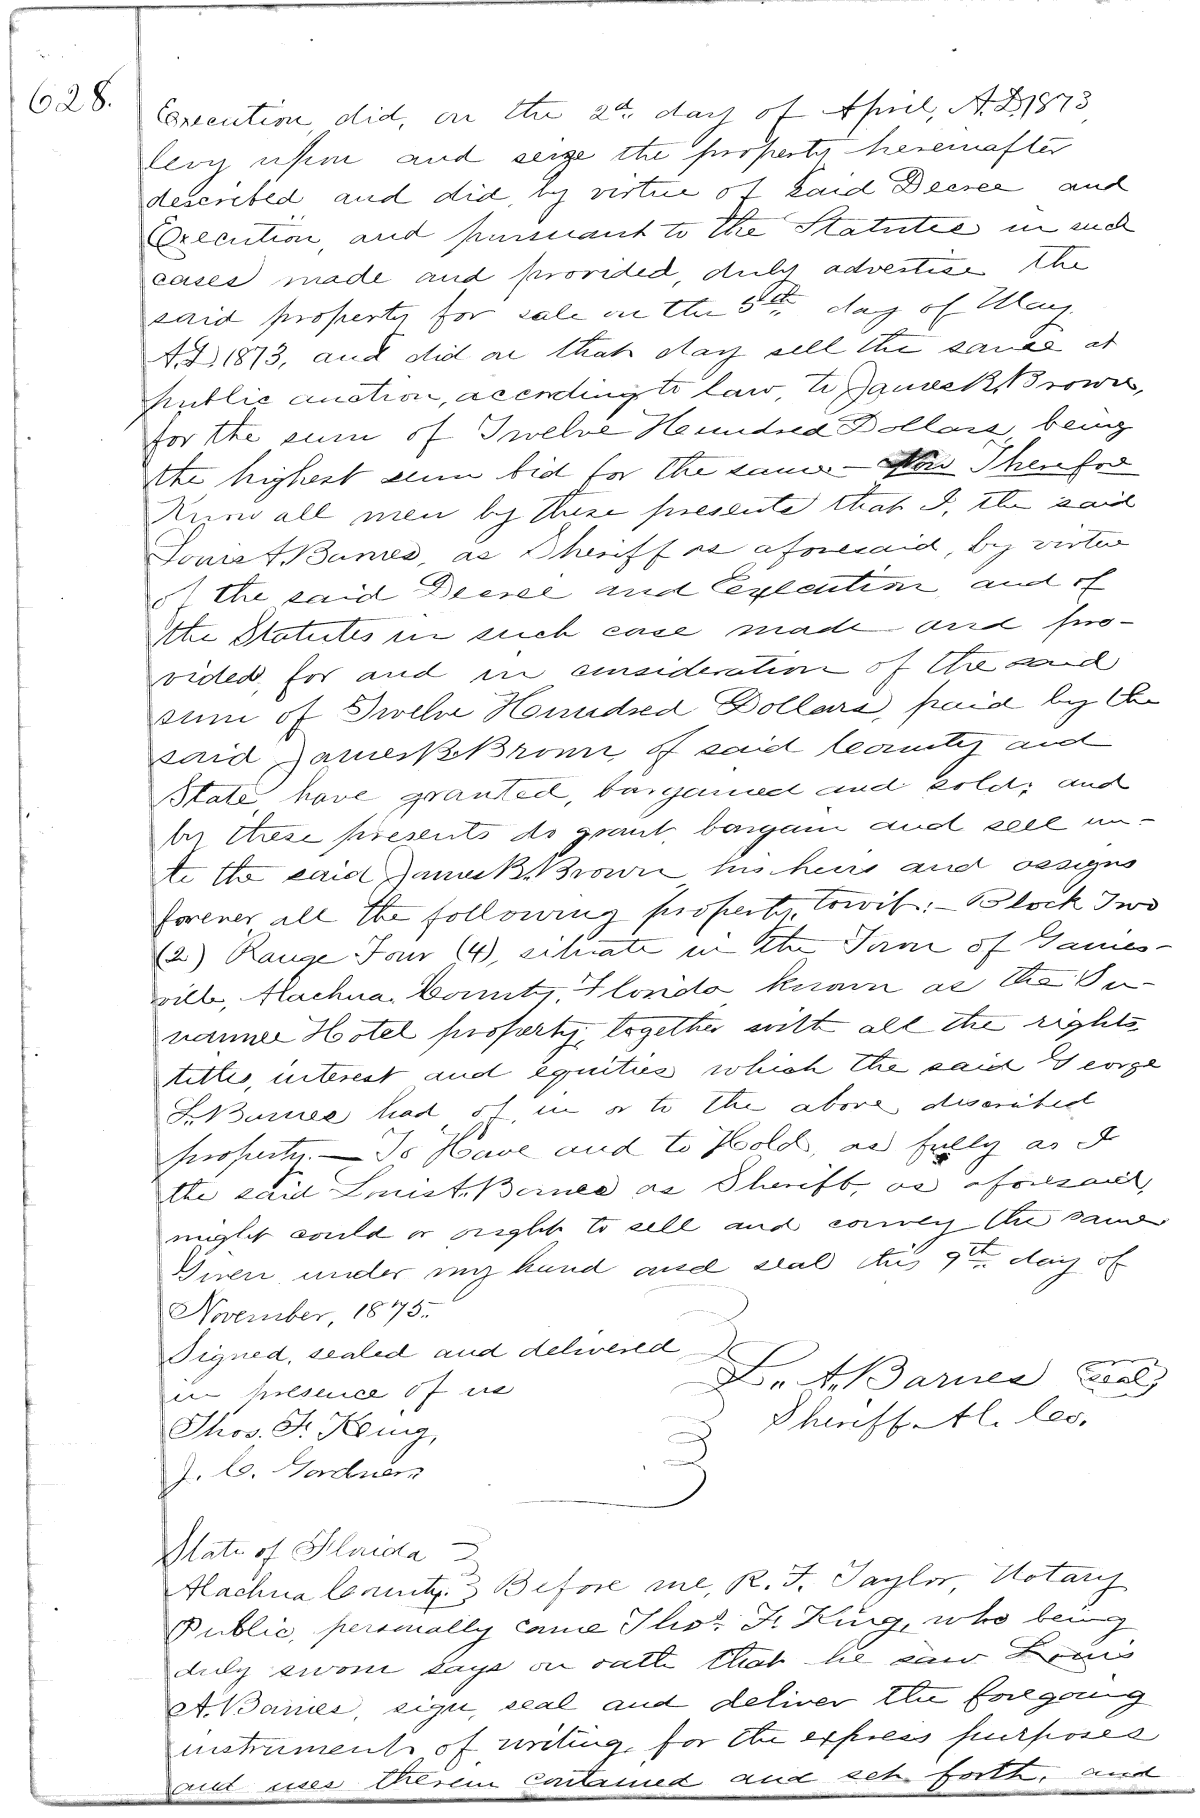 628.
Execution did, on the 2d. day of April, A.D. 1873,
levy upon and seize the property hereinafter
described and did, by virtue of said Decree and
Execution, and pursuant to the Statutes in such
cases made and provided, duly advertise the
said property for sale on the 5th. day of May
A.D. 1873, and did on that day sell the same at
public auction, according to law, to James B. Brown,
for the sum of Twelve Hundred Dollars, being
the highest sum bid for the same — Now Therefore
Know all men by these presents that I, the said
Louis A. Barnes, as Sheriff as aforesaid, by virtue
of the said Decree and Execution, and of
the Statutes in such case made and pro-
vided, for and in consideration of the said
sum of Twelve Hundred Dollars, paid by the
said James B. Brown, of said County and
State have granted, bargained and sold; and
by these presents do grant, bargain and sell un-
to the said James B. Brown, his heirs and assigns
forever, all the following property, towit: — Block Two
(2) Range Four (4), situate in the Town of Gaines-
ville, Alachua County, Florida, known as the Su-
wannee Hotel property, together with all the rights,
titles, interest and equities which the said George
L. Barnes had, of, in or to the above described
property. — To Have and to Hold, as fully as I
the said Louis A. Barnes as Sheriff, as aforesaid,
might could or ought to sell and convey the same
Given under my hand and seal this 9th. day of
November, 1875.
Signed, sealed and delivered
in presence of us
L. A. Barnes (seal)
Thos. F. King,
Sheriff Al. Co.
J. C. Gardner
State of Florida
Alachua County. Before me, R. F. Taylor, Notary
Public, personally came Thos. F. King, who being
duly sworn says on oath that he saw Louis
A. Barnes, sign, seal and deliver the foregoing
instrument of writing, for the express purposes
and uses therein contained and set forth, and